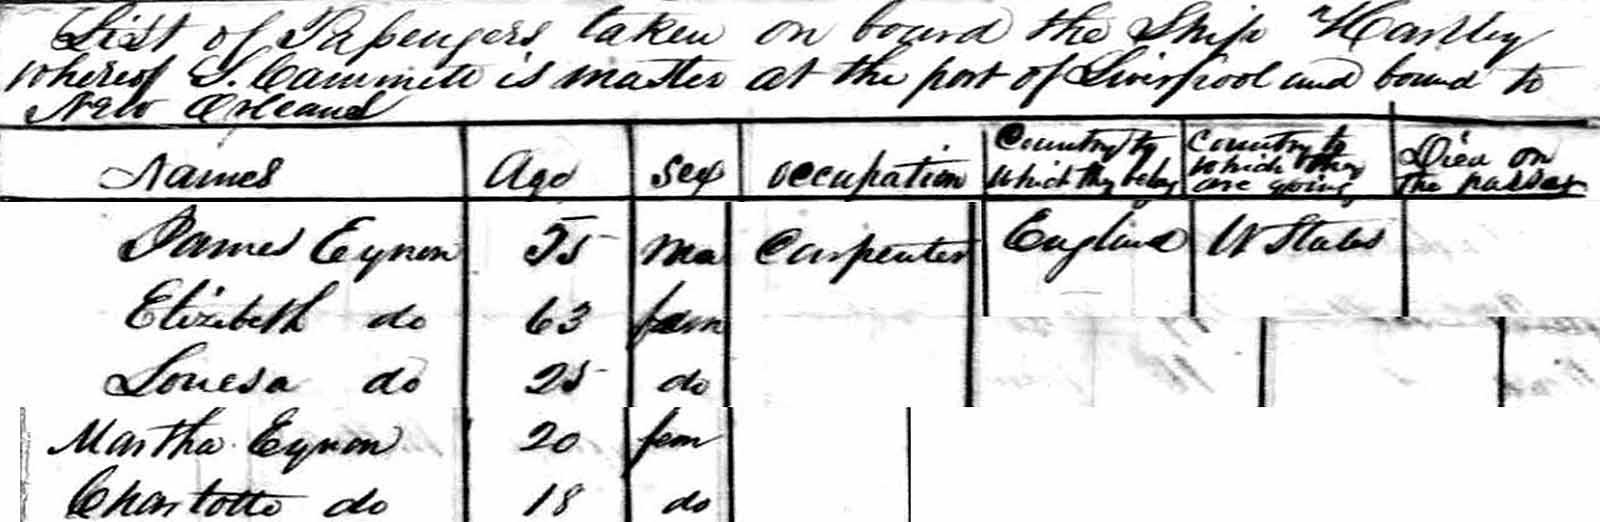 List of Passengers taken on board the Ship Hartley
whereof T. Cammite is master at the port of Liverpool and bound to
New Orleans
Names Age Sex occupation Country to which they belong Country to which they are going Died on the passage
James Eynon 55 Ma Carpenter England U States
Elizabeth do 63 fem
Louesa do 25 do
Martha Eynon 20 fem
Charlotte do 18 do